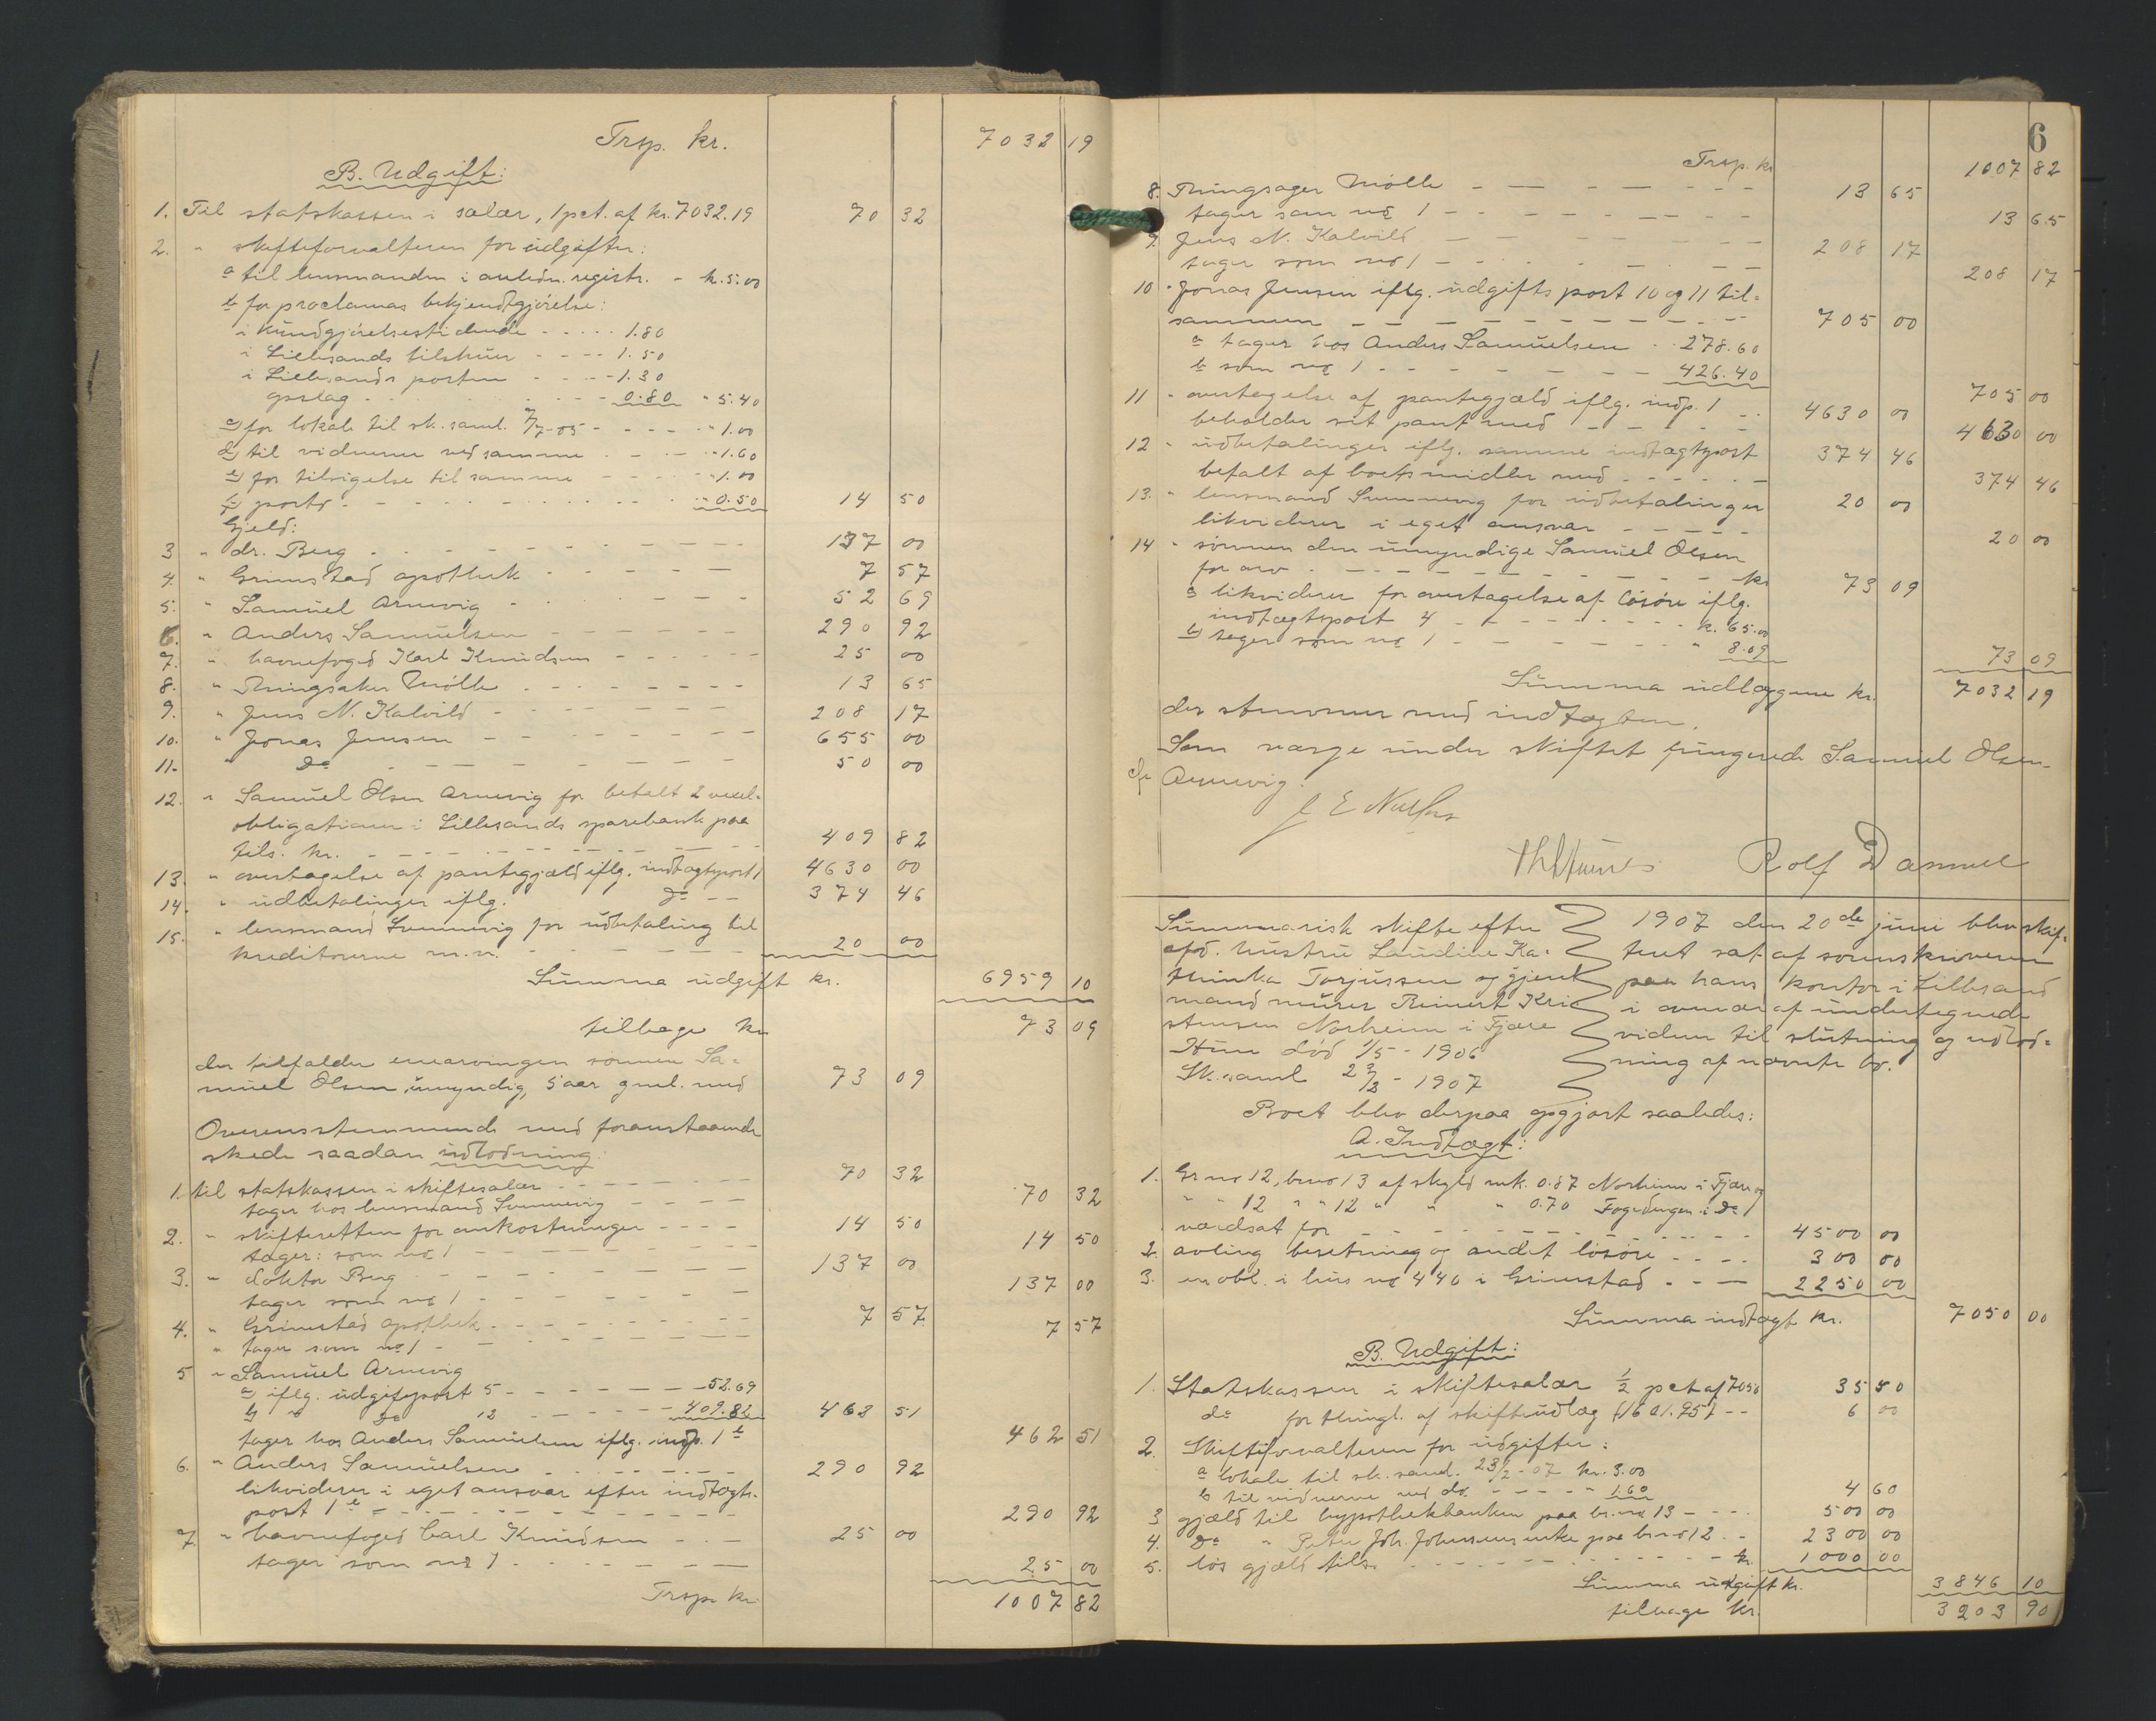 Trsp. kr. 7032 19
B. Udgift:
1. Til statskassen i salær, 1 pct. af kr. 7032.19 70 32
2. " skifteforvalteren for udgifter:
a til lensmanden i anledn. registr. - k. 5.00
b for proclamas bekjendtgjørelse:
i Kundgjørelsestidende - - - - 1.80
i Lillesands tilskuer - - - - 1.50
i Lillesands posten - - - - 1.30
opslag - - - - 0.80 " 5.40
c) for lokale til sk. saml. 7/7-05 - - - - " 1.00
d) til vidnerne ved samme - - - - 1.60
e) for tilsigelse til samme - - - - 1.00
f) porto - - - - " 0.50 14 50
Gjeld:
3 " dr. Berg - - - - 137 00
4. " Grimstad apothek - - - - 7 57
5. " Samuel Arnevig - - - - 52 69
6. " Anders Samuelsen - - - - 290 92
7. " havnefoged Karl Knudsen - - - - 25 00
8. " Thingsaker Mølle - - - - 13 65
9. " Jens N. Kalvild - - - - 208 17
10. " Jonas Jensen - - - - 655 00
11. " do - - - - 50 00
12. " Samuel Olsen Arnevig for betalt 2 vexel-
obligationer i Lillesands sparebank paa
tils. kr. - - - - 409 82
13. " overtagelse af pantegjæld iflg. indtægtspost 1 4630 00
14. " udbetalinger iflg. do - - 374 46
15. " lensmand Svennevig for udbetaling til
kreditorerne m.v. - - - - 20 00
Summa udgift kr. 6959 10
tilbage kr 73 09
der tilfalder enearvingen sønnen Sa-
muel Olsen, umyndig, 5 aar gml. med 73 09
Overensstemmende med foranstaaende
skede saadan udlodning:
1. til statskassen i skiftesalær - - - - 70 32
tager hos lensmand Svennevig - - - - 70 32
2. " skifteretten for omkostninger - - - - 14 50
tager: som no 1 - - - - 14 50
3. " doktor Berg - - - - 137 00
tager som no 1 - - - - 137 00
4. " Grimstad apothek - - - - 7 57
" tager som no 1 - - - - 7 57
5 " Samuel Arnevig
a) iflg. udgiftspost 5 - - - - 52.69
b) " do 12 - - - - 409.82 462 51
tager hos Anders Samuelsen iflg. indp. 1 b 462 51
6. " Anders Samuelsen - - - - 290 92
likviderer i eget ansvar efter indtægts-
post 1 b - - - - 290 92
7. " havnefoged Carl Knudsen - - - 25 00
tager som no 1 - - - - 25 00
Trsp. kr. 1007 82
6
Trsp. kr 1007 82
8. Thingsager Mølle - - - - 13 65
tager som no 1 - - - - 13 65
9. Jens N. Kalvild - - - - 208 17
tager som no 1 - - - - 208 17
10 " Jonas Jensen iflg. udgifts post 10 og 11 til-
sammen - - - - 705 00
a tager hos Anders Samuelsen - - 278.60
b som no 1 - - - - 426.40
705 00
11 " overtagelse af pantegjæld iflg. indp. 1 - - 4630 00
beholder sit pant med - - - - 4630 00
12 " udbetalinger iflg. samme indtægtspost 374 46
befalt af boets midler med - - - - 374 46
13. " lensmand Svennevig for udbetalinger 20 00
likviderer i eget ansvar - - - - 20 00
14 " sønnen den umyndige Samuel Olsen
for arv - - - - kr 73 09
a likviderer for overtagelse af løsøre iflg.
indtægtspost 4 - - - - k. 65.00
b) tager som no 1 - - - - " 8.09
73 09
Summa udlæggene kr. 7032 19
der stemmer med indtægten.
Som værge under skiftet fungerede Samuel Olsen
Arnevig.
Rolf Damuel
Summarisk skifte efter
afd. hustru Laudine Ka-
thinka Torjussen og gjenl.
mand murer Reinert Kri-
stensen Norheim i Fjære
Hun død 1/5 - 1906
Sk. saml 23/2 - 1907
1907 den 20de juni blev skif-
teret sat af sorenskriveren
paa hans kontor i Lillesand
i overvær af undertegnede
vidner til slutning og udlod-
ning af nævnte bo.
Boet blev derpaa opgjort saaledes:
A. Indtægt:
1. Gr no 12, br no 13 af skyld mk. 0.87 Norheim i Fjære og
" " 12 " " 12 " " " 0.70 Fogedengen i do
værdsat for - - - - 4500 00
2. avling besetning og andet løsøre - - - - 300 00
3. en obl. i hus no 440 i Grimstad - - - 2250 00
Summa indtægt kr. 7050 00
B. Udgift:
1. Statskassen i skiftesalær 1/2 pct af 7050 35 50
do for thingl. af skifteudlæg - - 6 00
2. Skifteforvalteren for udgifter:
a lokale til sk. saml. 23/2-07 kr. 3.00
b til vidnerne ved do. - - - - " 1.60 4 60
3 gjæld til hypothekbanken paa br. no 13 - - - 500 00
4. do " Peter Joh. Johnsens enke paa br no 12 - - 2300 00
5. løs gjæld tils. - - - - kr. 1000 00
Summa udgift kr. 3846 10
tilbage kr. 3203 90